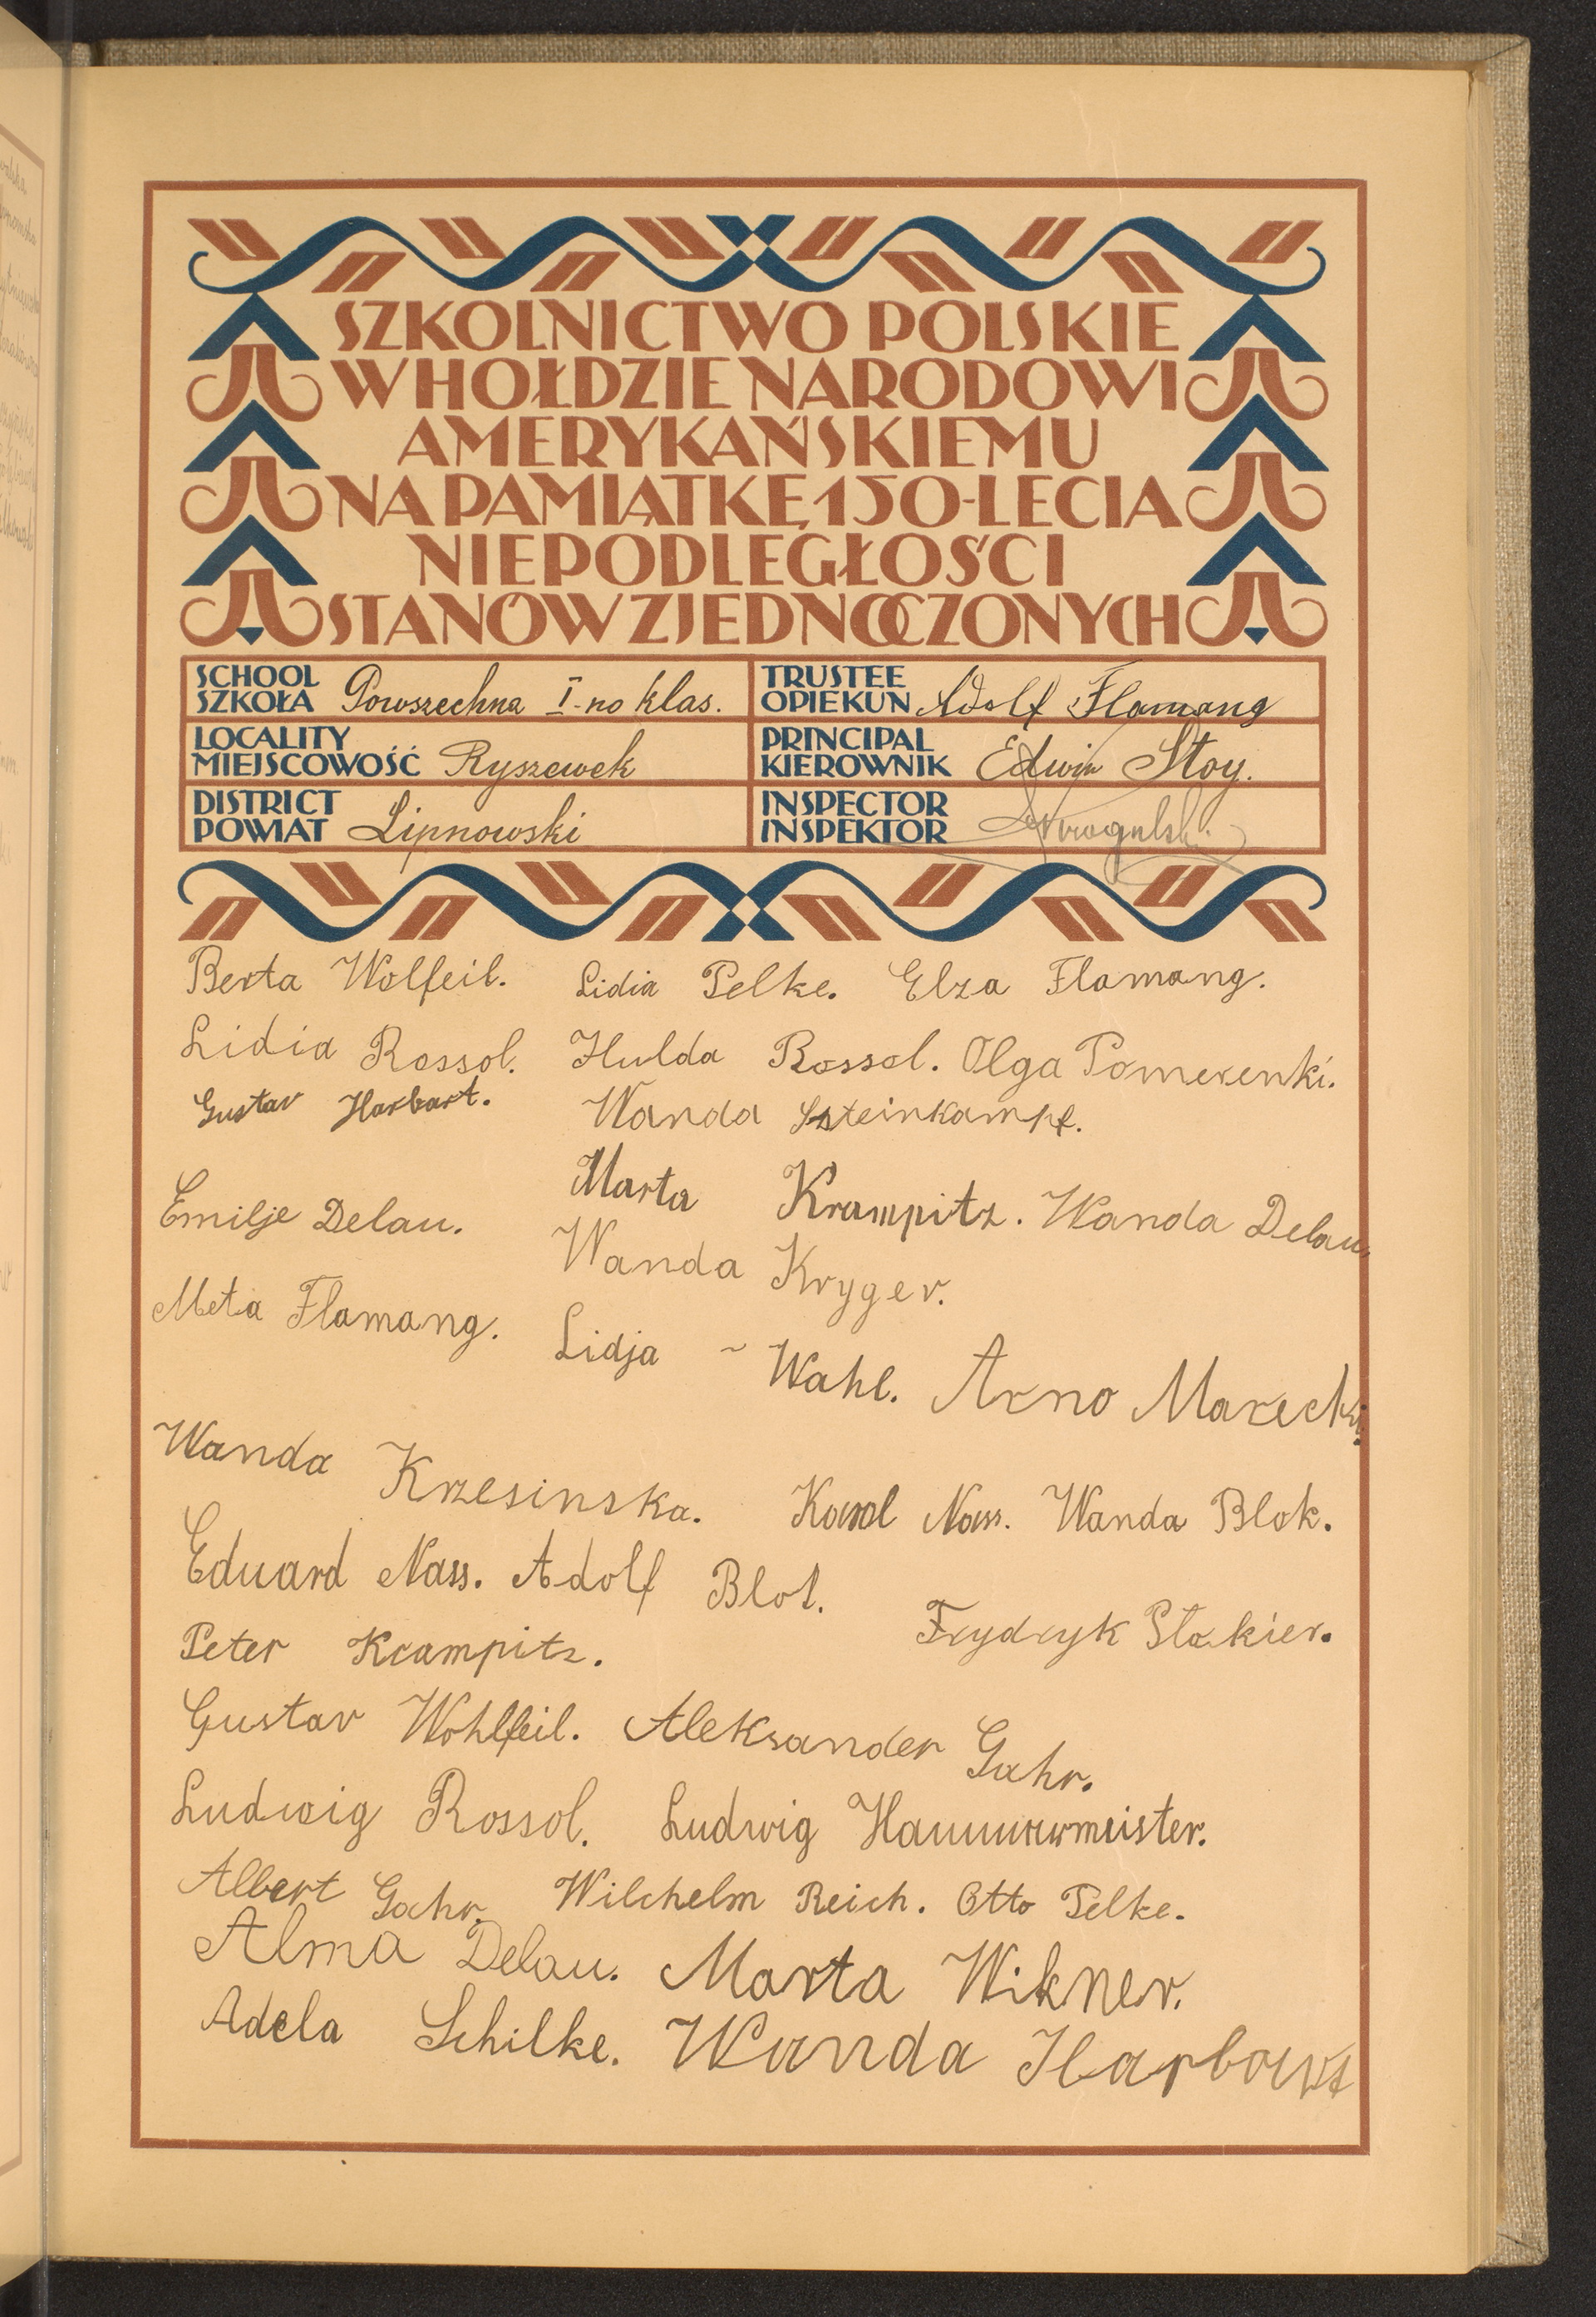 SZKOLNICTWO POLSKIE
W HOŁDZIE NARODOWI
AMERYKAŃSKIEMU
NA PAMIĄTKĘ 150-LECIA
NIEPODLEGŁOŚCI
STANÓW ZJEDNOCZONYCH
SCHOOL
SZKOŁA Powszechna I-no klas.
TRUSTEE
OPIEKUN Adolf Flamang
LOCALITY
MIEJSCOWOŚĆ Ryszewek
PRINCIPAL
KIEROWNIK Edwin Stoy.
DISTRICT
POWIAT Lipnowski
INSPECTOR
INSPEKTOR
Berta Wolfeil. Lidia Pelke. Elza Flamang.
Lidia Rossol. Hulda Rossol. Olga Pomerenki.
Gustav Harbart. Wanda Steinkampf.
Marta Krampitz. Wanda Delau.
Emilje Delau.
Wanda Kryger.
Meta Flamang.
Lidja ~ Wahl. Arno Marecki.
Wanda Krzesinska. Karol Nass. Wanda Blok.
Eduard Nass. Adolf Blok.
Frydryk Stakier.
Peter Krampitz.
Gustav Wohlfeil. Aleksander Gahr.
Ludwig Rossol. Ludwig
Albert Gahr. Wilchelm Reich. Otto Pelke.
Alma Delau. Marta Wikner.
Adela Schilke. Wanda Harbart